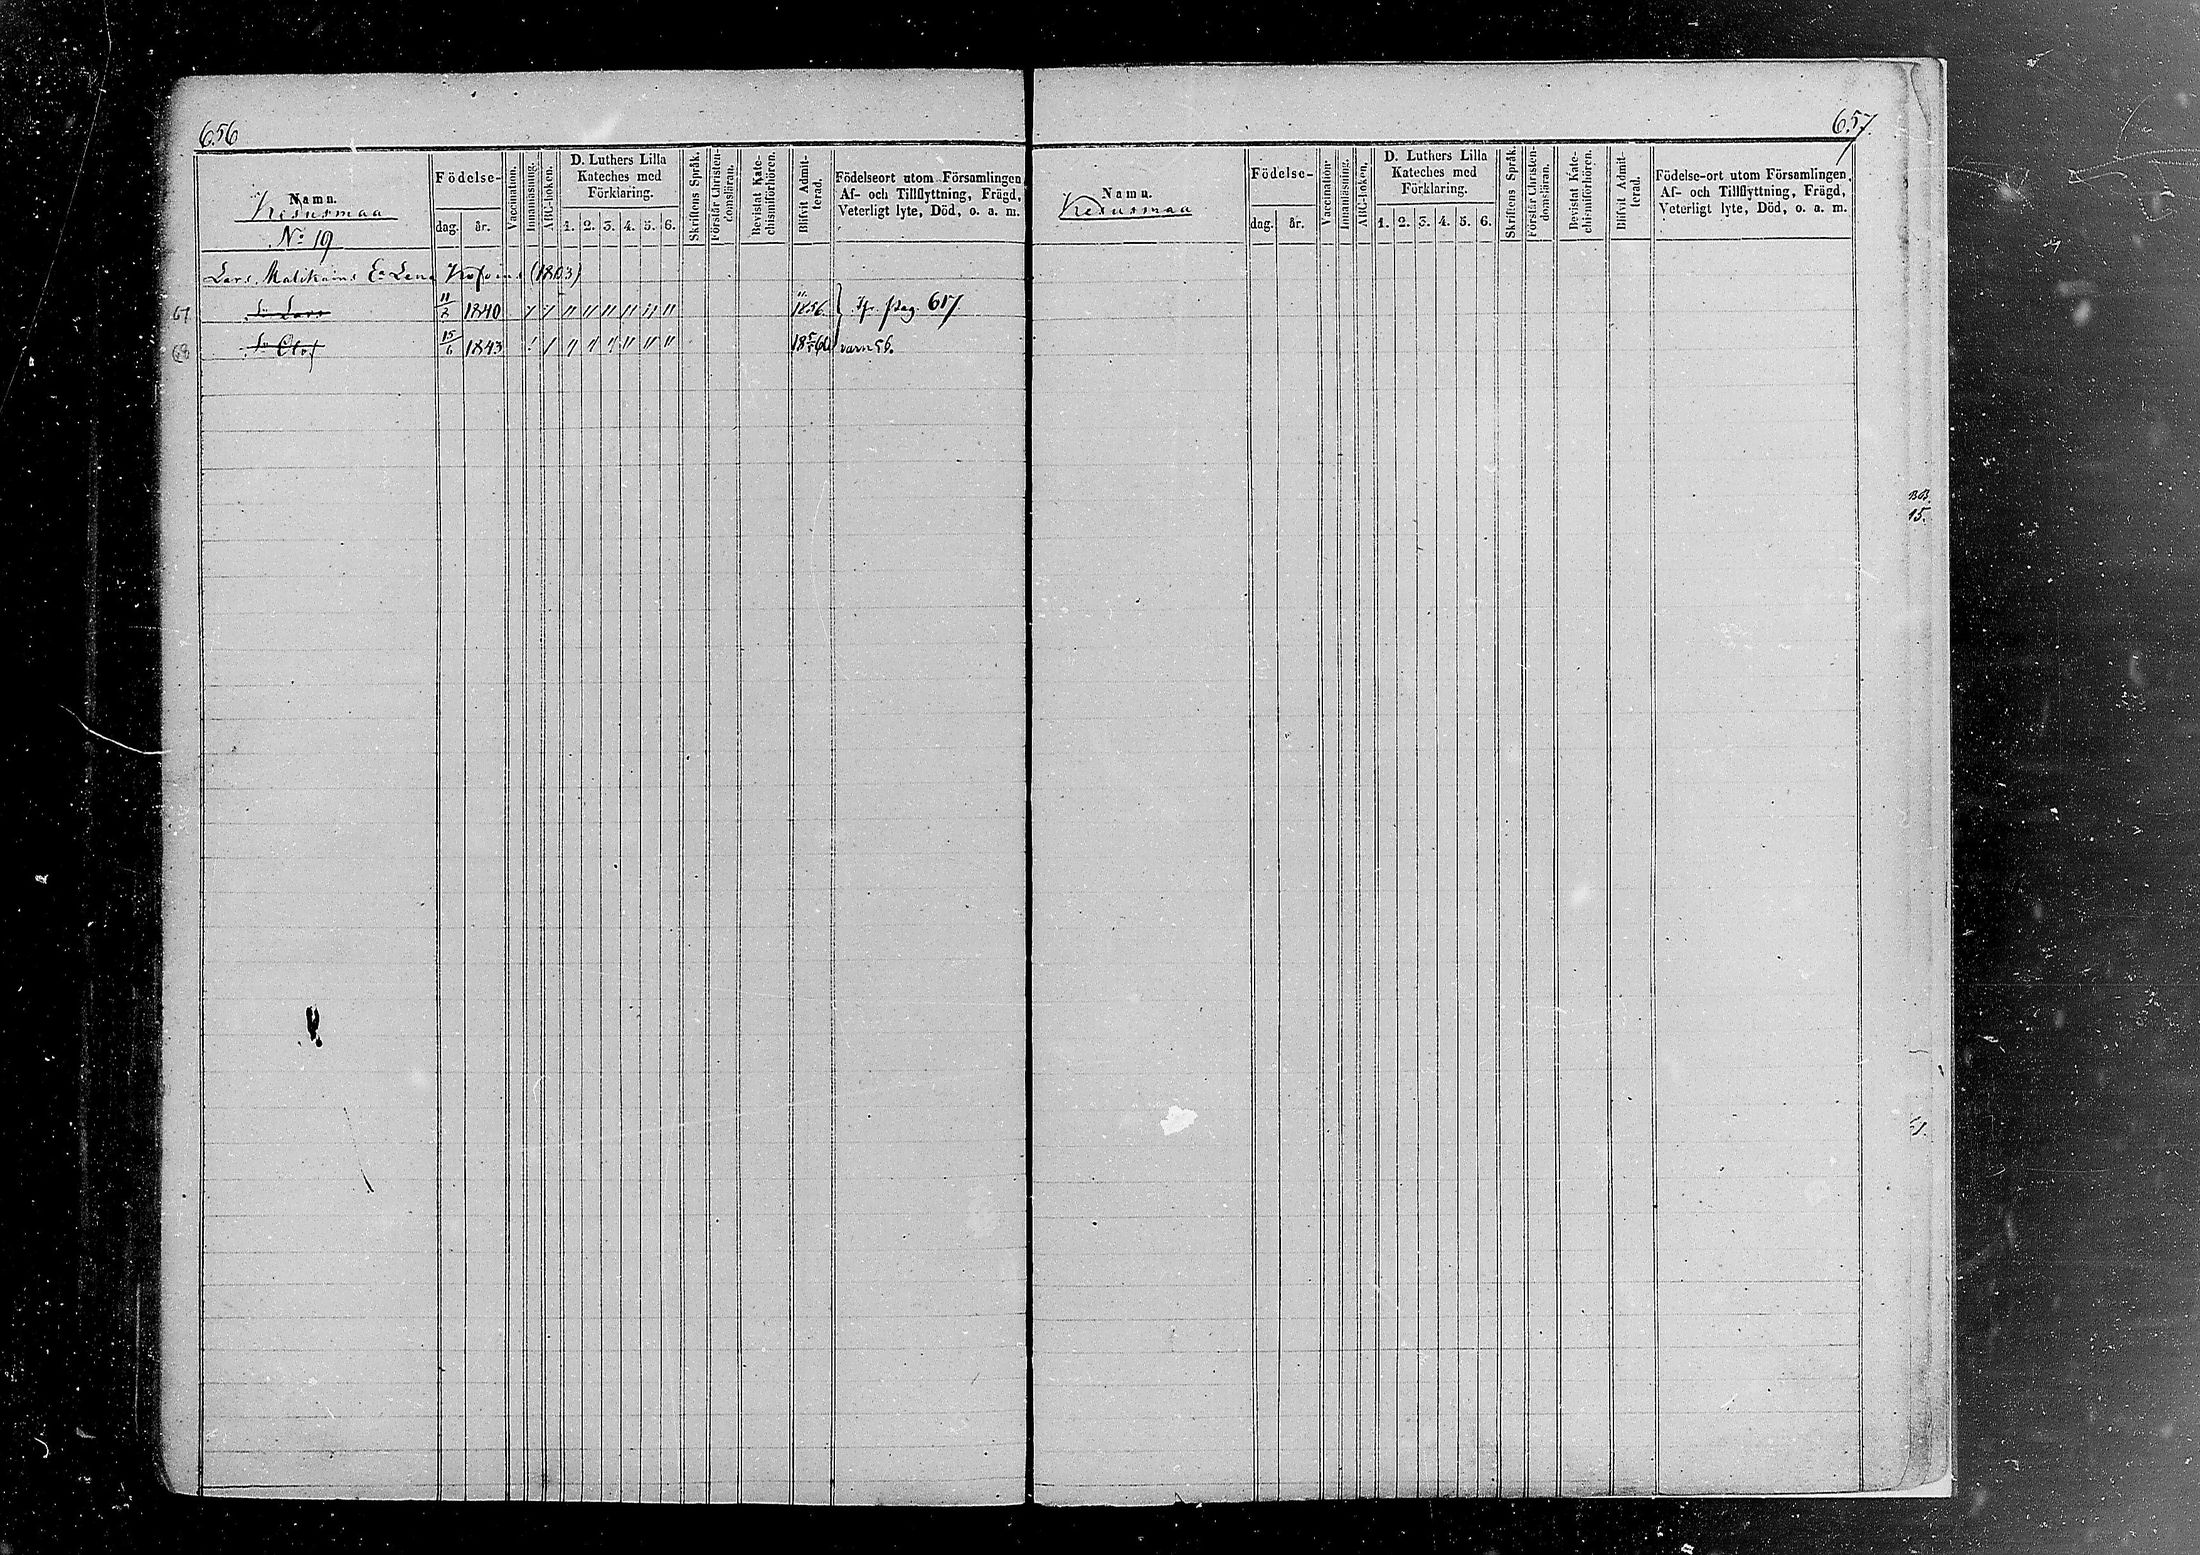 656
Namn.
Kesusmaa
No 19
Födelse-
dag. år.
Vaccination.
Innanläsning.
ABC-boken.
D. Luthers Lilla
Kateches med
Förklaring.
1. 2. 3. 4. 5. 6.
Skriftens Språk.
Förstår Christen-
domsläran.
Bevistat Kate-
chismiförhören.
Blifvit Admit-
terad.
Födelseort utom Församlingen
Af- och Tillflyttning, Frägd,
Veterligt lyte, Död, o. a. m.
Lars Matikains Ea Lena (1803)
67 Sn Lars 11/2 1840 〃 〃 〃 〃 〃 〃 1856 pag. 617
68 Sn Olof 15/6 1843 〃 〃 〃 〃 〃 〃 18 5/5 60 varn 56.
657
Namn.
Kesusmaa
Födelse-
dag. år.
Vaccination.
Innanläsning.
ABC-boken.
D. Luthers Lilla
Kateches med
Förklaring.
1. 2. 3. 4. 5. 6.
Skriftens Språk.
Förstår Christen-
domsläran.
Bevistat Kate-
chismiförhören.
Blifvit Admit-
terad.
Födelse-ort utom Församlingen,
Af- och Tillflyttning, Frägd,
Veterligt lyte, Död, o. a. m.
15.